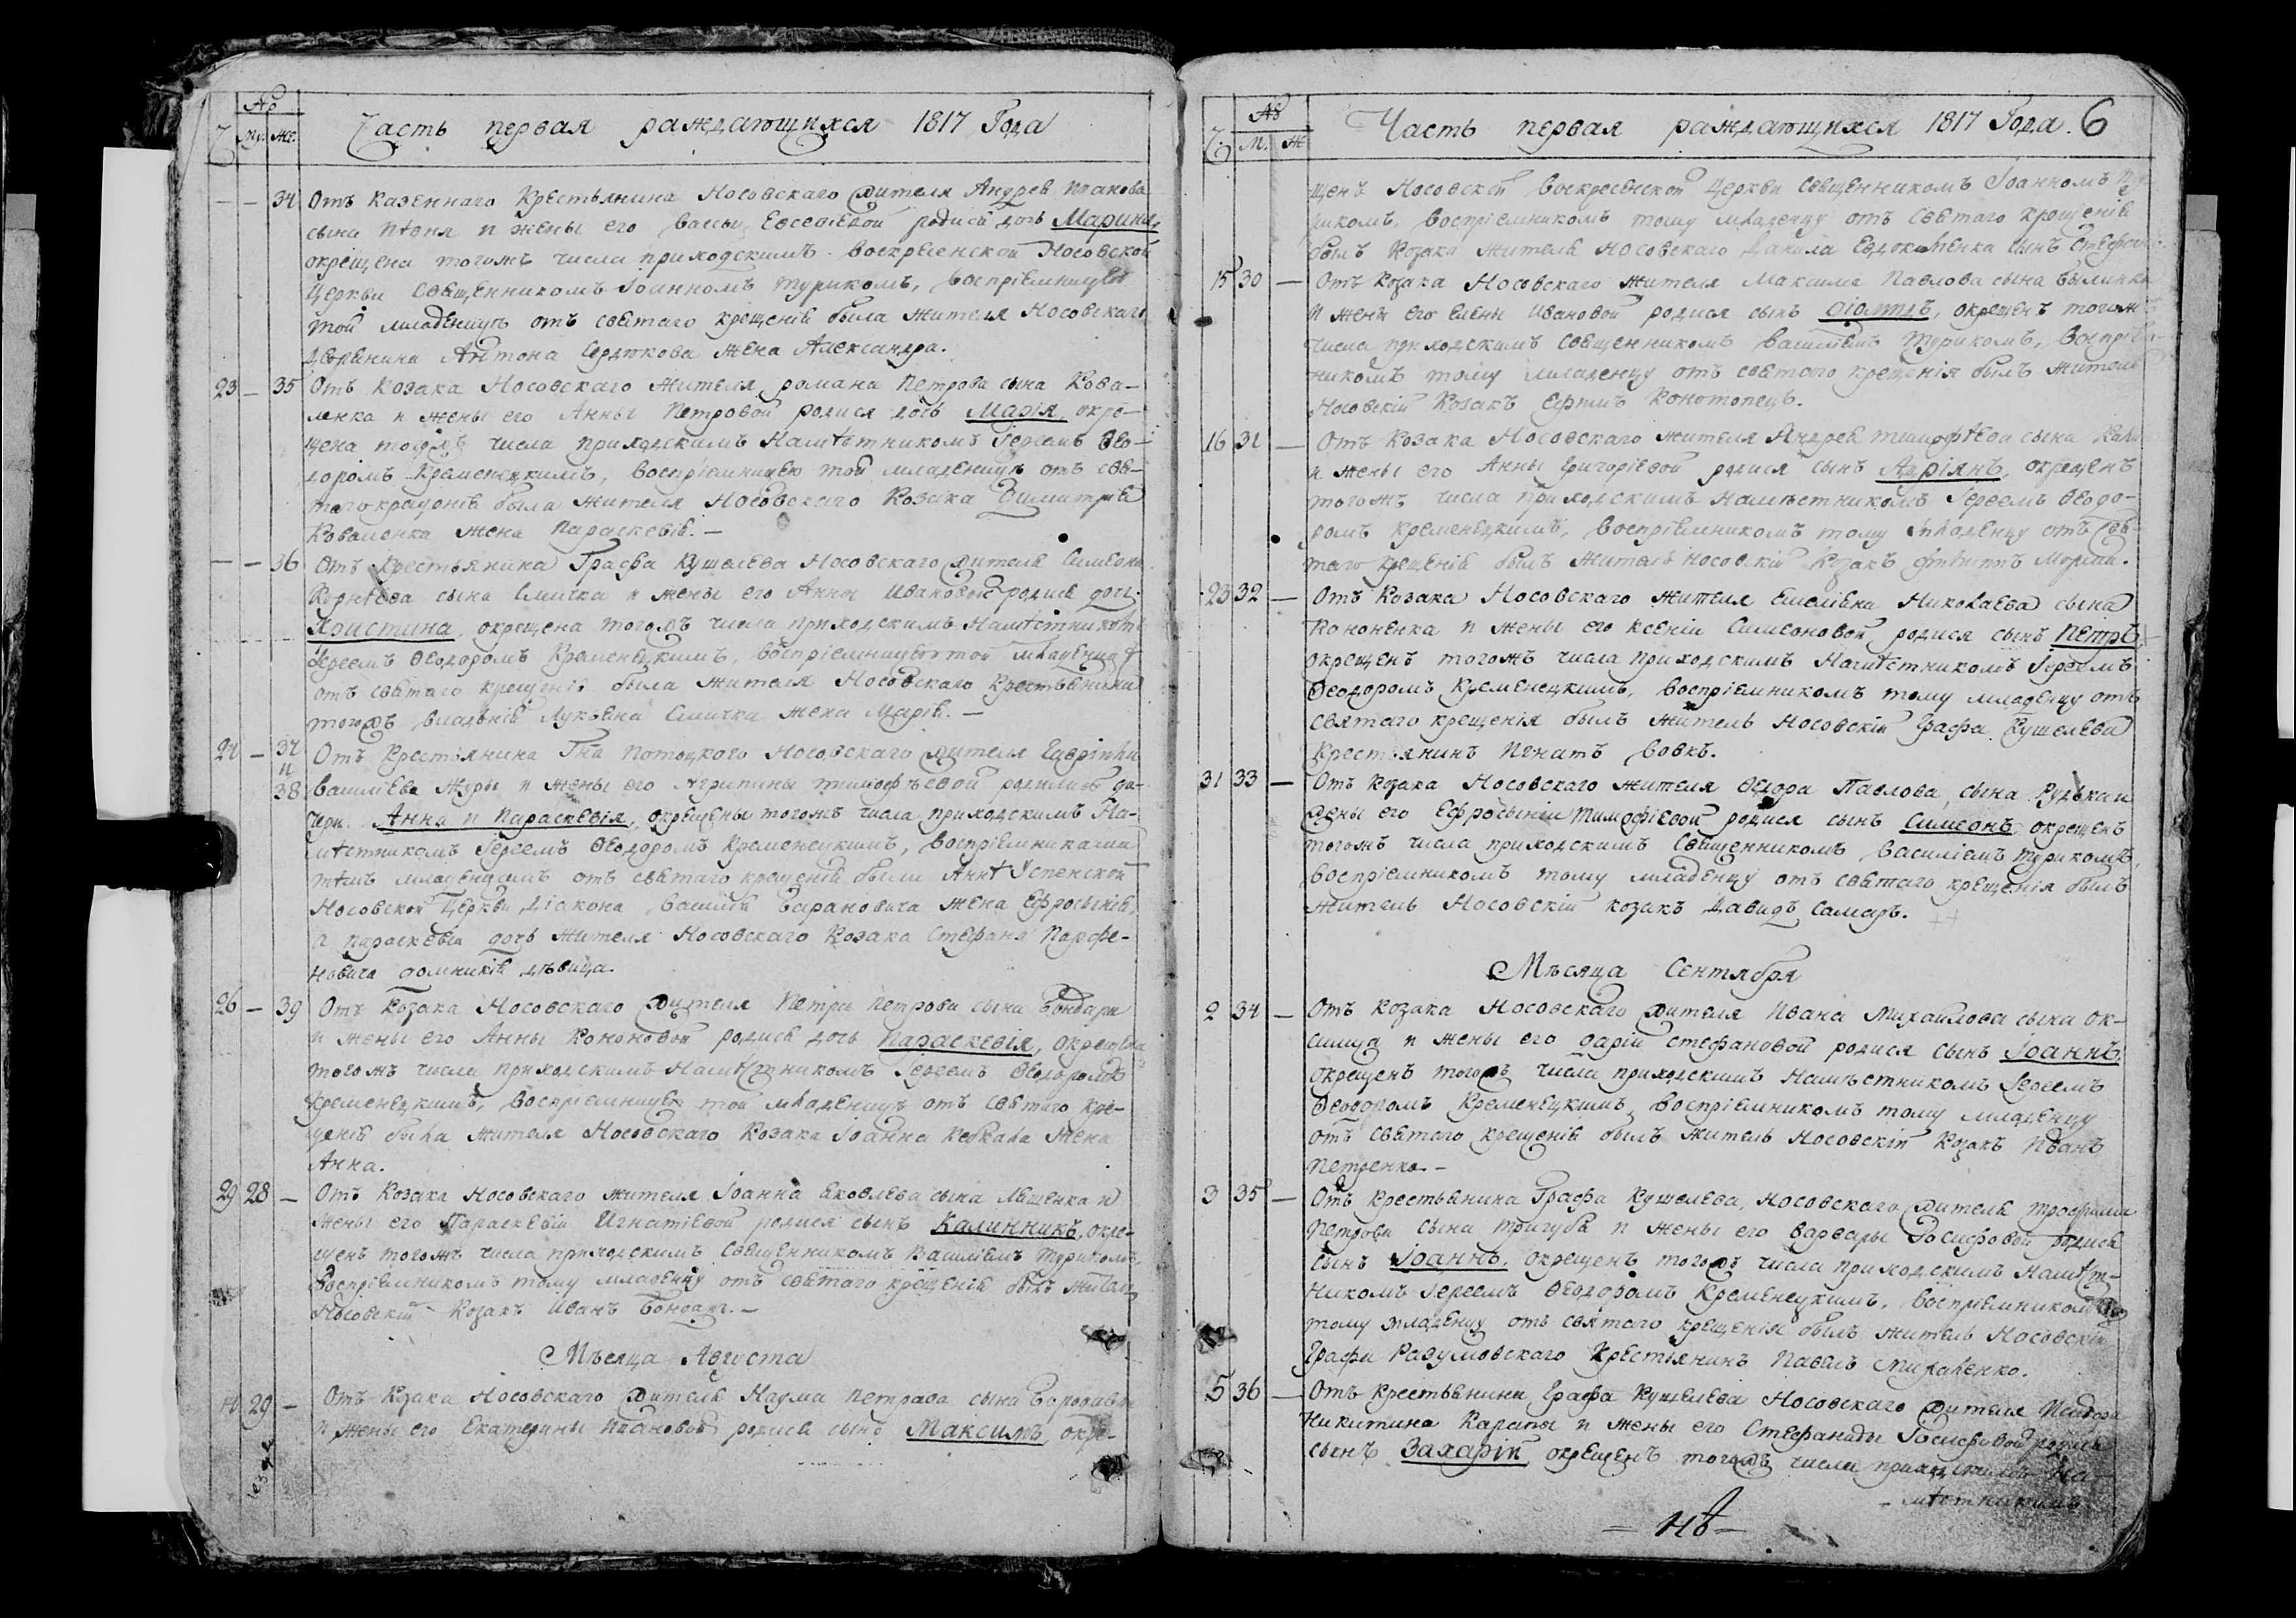 №
Ч м. же. Часть первая раждающихся 1817 Года
— — 34 Отъ казеннаго крестьянина Носовскаго жителя Андрея Иванова
сына и жены его Вассы Евсеевой родися дочь Марина,
окрещена тогожъ числа приходскимъ Воскресенской Носовской
Церкви Священникомъ Іоанномъ Туриком​ъ, воспріемницею
той младенице отъ святаго крещенія была жителя Носовскаго
Дворянина Антона Сердюкова жена Александра.
23 — 35 Отъ Козака Носовскаго жителя романа Петрова сына Кова-
ленка и жены его Анны Петровой родися дочь Марія, окре-
щена тогожъ числа приходскимъ Намѣстникомъ Іереемъ Ѳео-
доромъ Кременецкимъ, воспріемницею той младенице отъ свя-
таго крещенія была жителя Носовскаго Козака Димитрія
Коваленка жена Параскевія. —
— — 36 Отъ Крестьянина Графа Кушелева Носовскаго жителя Симеона
Корнѣева сына Смичка и жены его Анны Ивановой родися дочь
Христина, окрещена тогожъ числа приходскимъ Намѣстникомъ
Іереемъ Ѳеодоромъ Кременецкимъ, воспріемницею той младенице
отъ святаго крещенія была жителя Носовскаго Крестьянина
тогожъ владѣнія Лукьяна Смичка жена Марія. —
24 — 37 Отъ Крестьянина Гна Потоцкого Носовскаго жителя Гавріила
и
38 Василіева Журы и жены его Агрипины тимофѣевой родились до-
чери Анна и Параскевія, окрещены тогожъ числа приходскимъ На-
мѣстникомъ Іереемъ Ѳеодоромъ Кременецкимъ, воспріемниками
тѣмъ младенцамъ отъ святаго крещенія были Аннѣ Успенской
Носовской Церкви Діакона Василія Барановича жена Ефросинія,
а параскевіи дочь жителя Носовскаго Козака Стефана Парфе-
новича домникія дѣвица.
26 — 39 Отъ Козака Носовскаго жителя Петра Петрова сына Бондаря
и жены его Анны Кононовой родися дочь Параскевія, окрещена
тогожъ числа приходскимъ Намѣстникомъ Іереемъ Ѳеодоромъ
Кременецкимъ, воспріемницею той младенице отъ святаго кре-
щенія была жителя Носовскаго Козака Іоанна жена
Анна.
29 28 — Отъ Козака Носовскаго жителя Іоанна Яковлева сына Лященка и
жены его Параскевіи Игнатіевой родися сынъ Калинникъ, окре-
щенъ тогожъ числа приходскимъ Священникомъ Василіемъ Турикомъ,
Воспріемникомъ тому младенцу отъ святаго крещенія былъ житель
Носовскій Козакъ Иванъ Бондарь. —
Мѣсяца Августа
29 — Отъ Козака Носовскаго жителя Наума Петрова сына
и жены его Екатерины Ивановой родися сынъ Максимъ, окре-
№
Ч. М. Ж Часть первая раждающихся 1817 Года. 6
щенъ Носовской Воскресенской Церкви Священникомъ Іоанномъ Ту-
рикомъ, воспріемникомъ тому младенцу отъ святаго крещенія
былъ Козака жителя Носовскаго Данила Евдокименка сынъ Стефанъ.
15 30 — Отъ Козака Носовскаго жителя Максима Павлова сына Былинки
и жены его Елены Ивановой родися сынъ Діомидъ, окрещенъ тогожъ
числа приходскимъ Священникомъ Василіемъ Турикомъ, Воспріем-
никомъ тому младенцу отъ святаго крещенія былъ житель
Носовскій Козакъ Ефимъ Конотопецъ.
16 31 — Отъ Козака Носовскаго жителя Андрея тимофѣева сына
и жены его Анны Григоріевой родися сынъ Адріянъ, окрещенъ
тогожъ числа приходскимъ Намѣстникомъ Іереемъ Ѳеодо-
ромъ Кременецкимъ, воспріемникомъ тому младенцу отъ свя-
таго крещенія былъ житель Носовскій Козакъ Филиппъ
23 32 — Отъ Козака Носовскаго жителя Емеліяна Николаева сына
Кононенка и жены его Ксеніи Симеоновой родися сынъ Петръ,
окрещенъ тогожъ числа приходскимъ Намѣстникомъ Іереемъ
Ѳеодоромъ Кременецкимъ, воспріемникомъ тому младенцу отъ
святаго крещенія былъ житель Носовскій Графа Кушелева
Крестьянинъ Игнатъ Вовкъ.
31 33 — Отъ Козака Носовскаго жителя Ѳедора Павлова сына Рудька и
жены его Ефросиніи Тимофіевой родися сынъ Симеонъ, окрещенъ
тогожъ числа приходскимъ Священникомъ Василіемъ Турикомъ,
Воспріемникомъ тому младенцу отъ святаго крещенія былъ
житель Носовскій козакъ Давидъ Самарь.
Мѣсяца Сентября
2 34 — Отъ Козака Носовскаго жителя Ивана Михайлова сына Ок-
и жены его Даріи Стефановой родися сынъ Іоаннъ,
окрещенъ тогожъ числа приходскимъ Намѣстникомъ Іереемъ
Ѳеодоромъ Кременецкимъ, Воспріемникомъ тому младенцу
отъ святаго крещенія былъ житель Носовскій Козакъ Иванъ
Петренко. —
3 35 — Отъ Крестьянина Графа Кушелева, Носовскаго жителя трофима
Петрова сына Тригуба и жены его Варвары Іосифовой родися
сынъ Іоаннъ, окрещенъ тогожъ числа приходскимъ Намѣст-
никомъ Іереемъ Ѳеодоромъ Кременецкимъ, Воспріемникомъ
тому младенцу отъ святаго крещенія былъ житель Носовскій
Графа Разумовскаго Крестьянинъ Павелъ Михаленко.
5 36 — Отъ Крестьянина Графа Кушелева Носовскаго жителя
Никитина Карапы и жены его Стефаниды Іосифовой родися
сынъ Захарій, окрещенъ тогожъ числа приходскимъ На-
мѣстникомъ